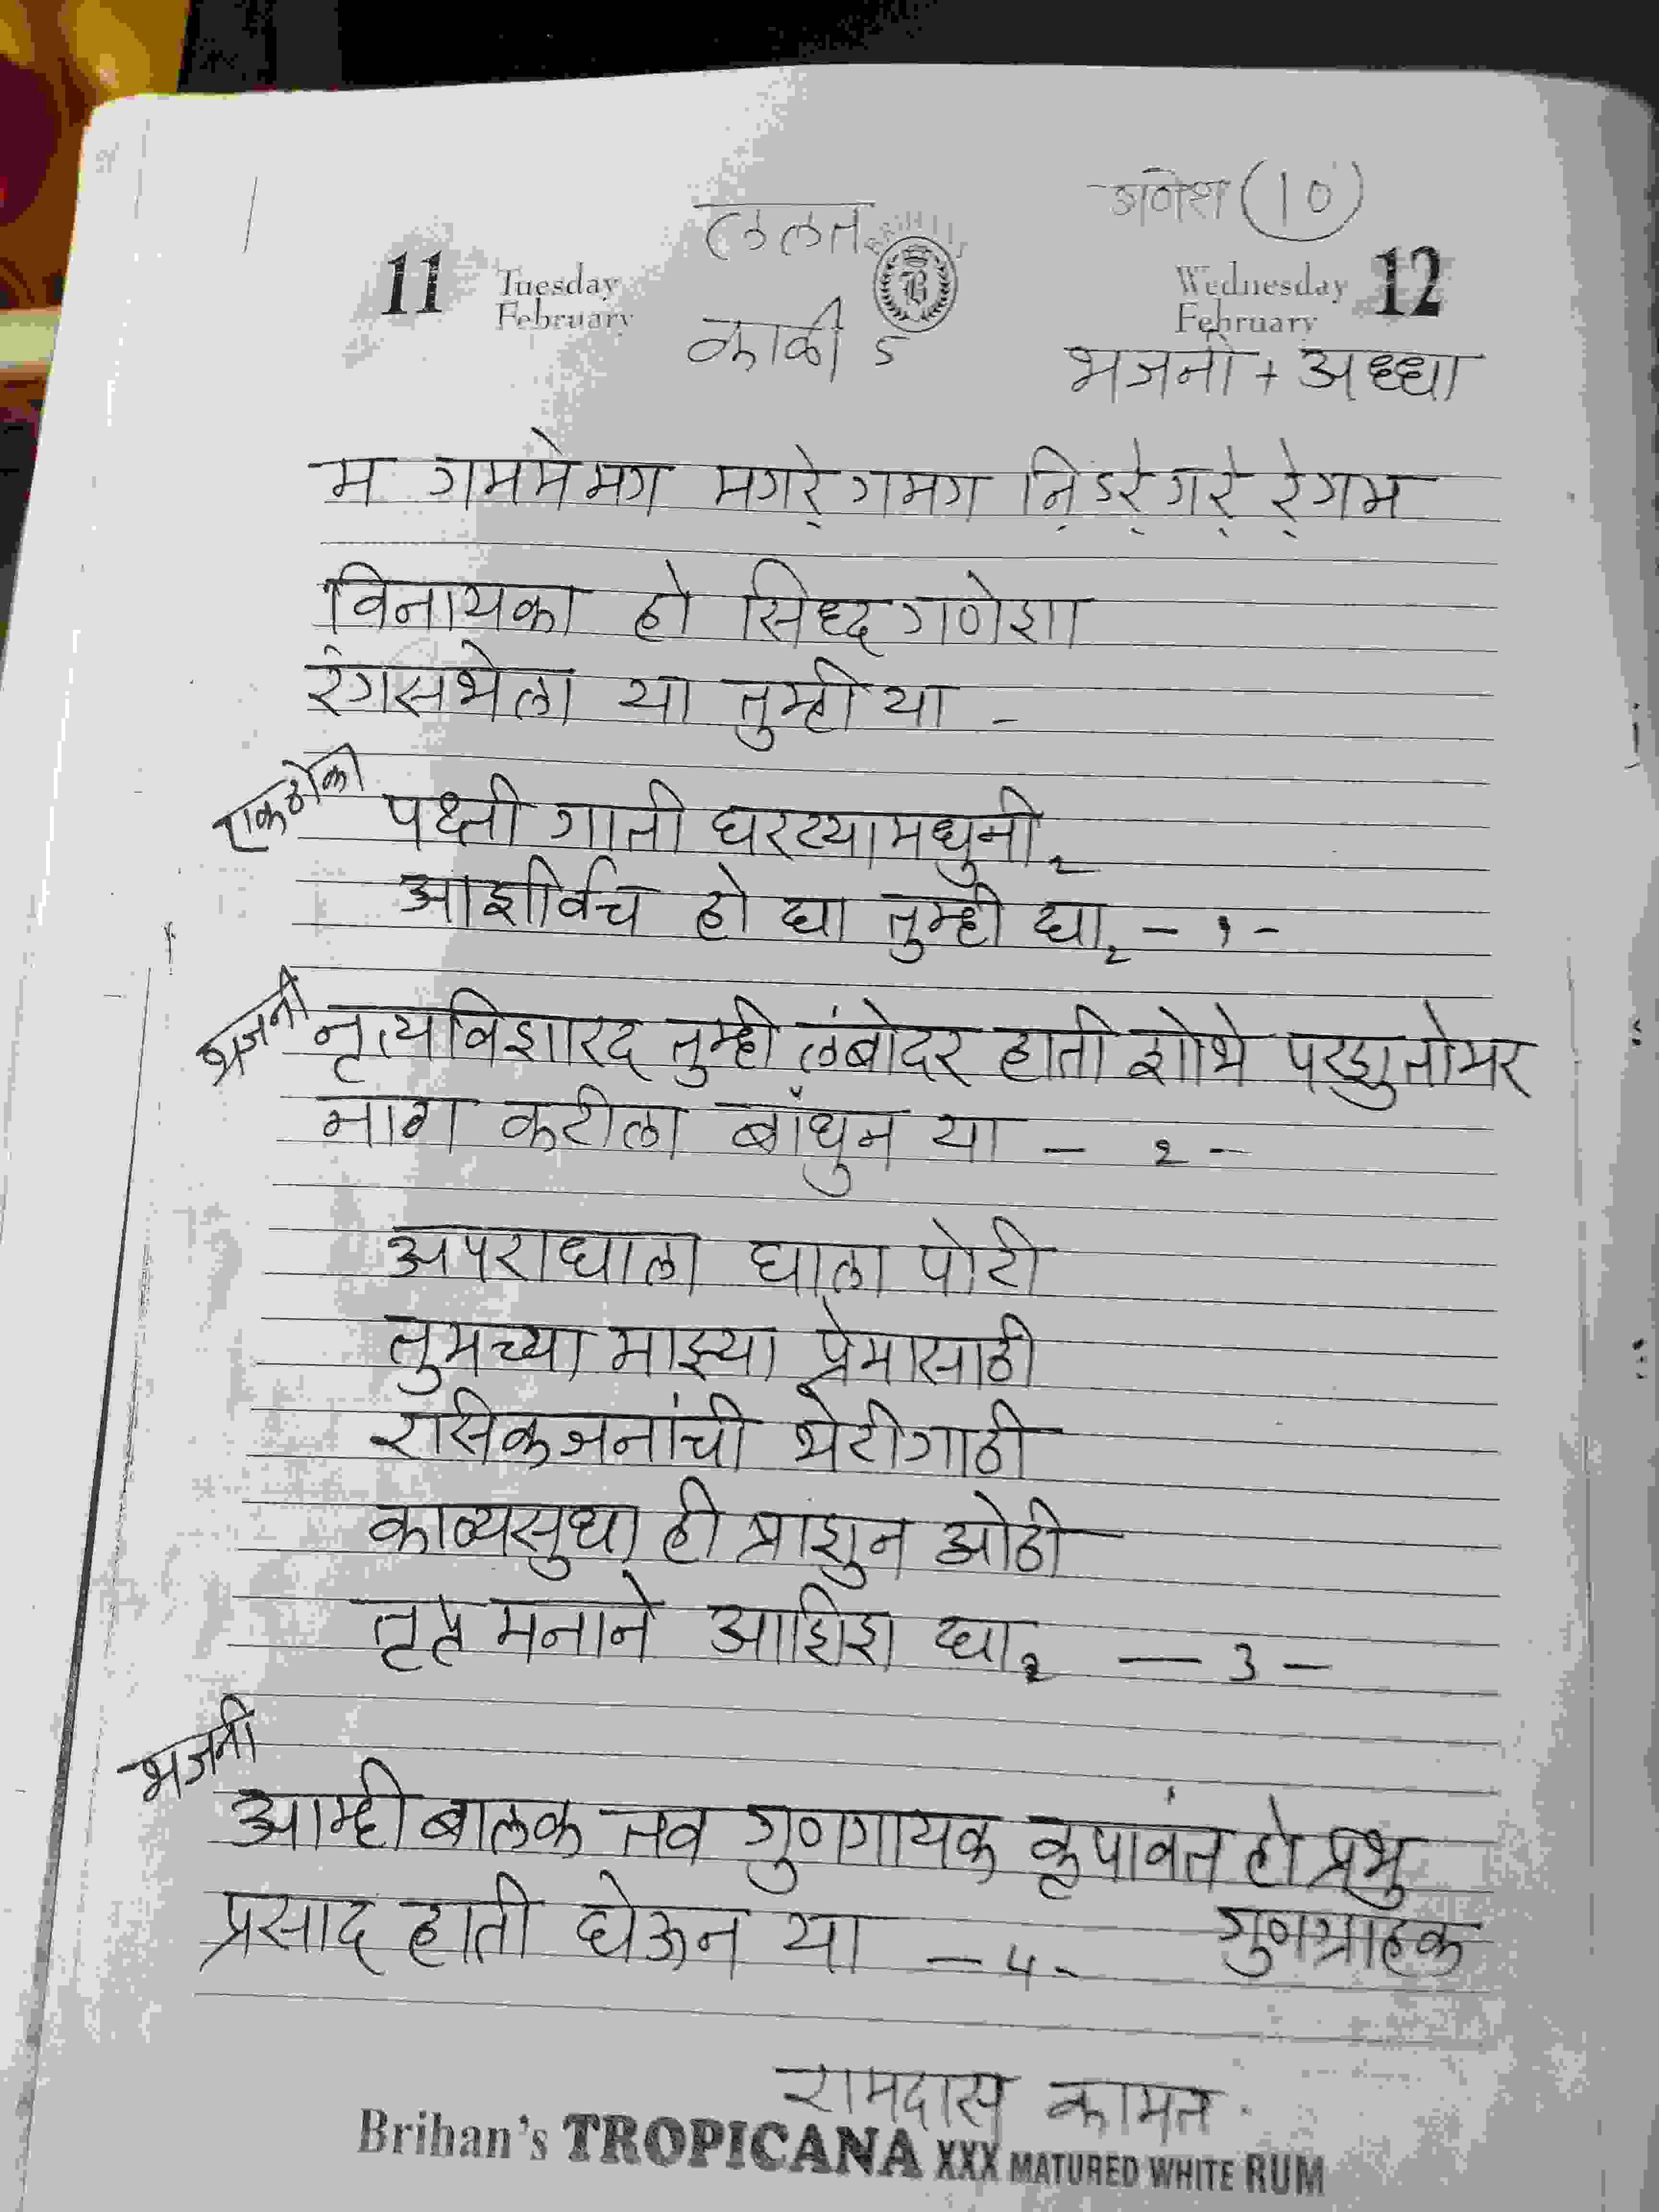 गणेश (10)
ललत
11 Tuesday February
Wednesday February 12
काळी 5
भजनी + अध्धा
म गममेमग मगरे॒ गमग नि॒ऽरे॒गरे॒ रे॒गम
विनायका हो सिध्द गणेशा
रंगसभेला या तुम्ही या -
एकठोका
पक्षी गाती घरट्यामधुनी २
आशीर्वच हो द्या तुम्ही द्या २ - १ -
भजनी
नृत्यविशारद तुम्ही लंबोदर हाती शोभे परशुतोमर
नाग कटीला बांधुन या - २ -
अपराधाला घाला पोटी
तुमच्या माझ्या प्रेमासाठी
रसिकजनांची भेटीगाठी
काव्यसुधा ही प्राशुन ओठी
तृप्त मनाने आशिश द्या २ - 3 -
भजनी
आम्ही बालक तव गुणगायक कृपावंत हो प्रभु
गुणग्राहक
प्रसाद हाती घेऊन या - ४ -
रामदास कामत.
Brihan's TROPICANA XXX MATURED WHITE RUM